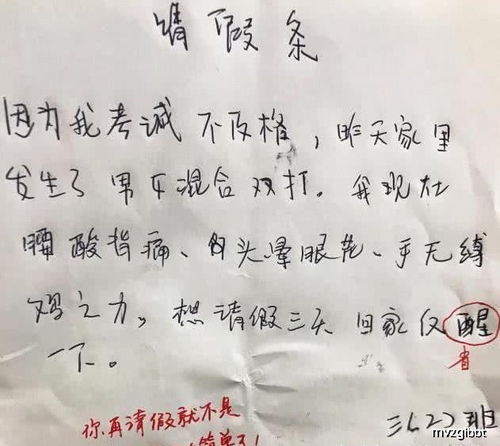 请假条
因为我考诚不及格，昨天家里
发生了男女混合双打。我现在
腰酸背痛、白头晕眼花、手无缚
鸡之力。想请假三天回家仅醒
省
一下。
你再请假就不是
简单了！
三（2）班
mvzgibbt